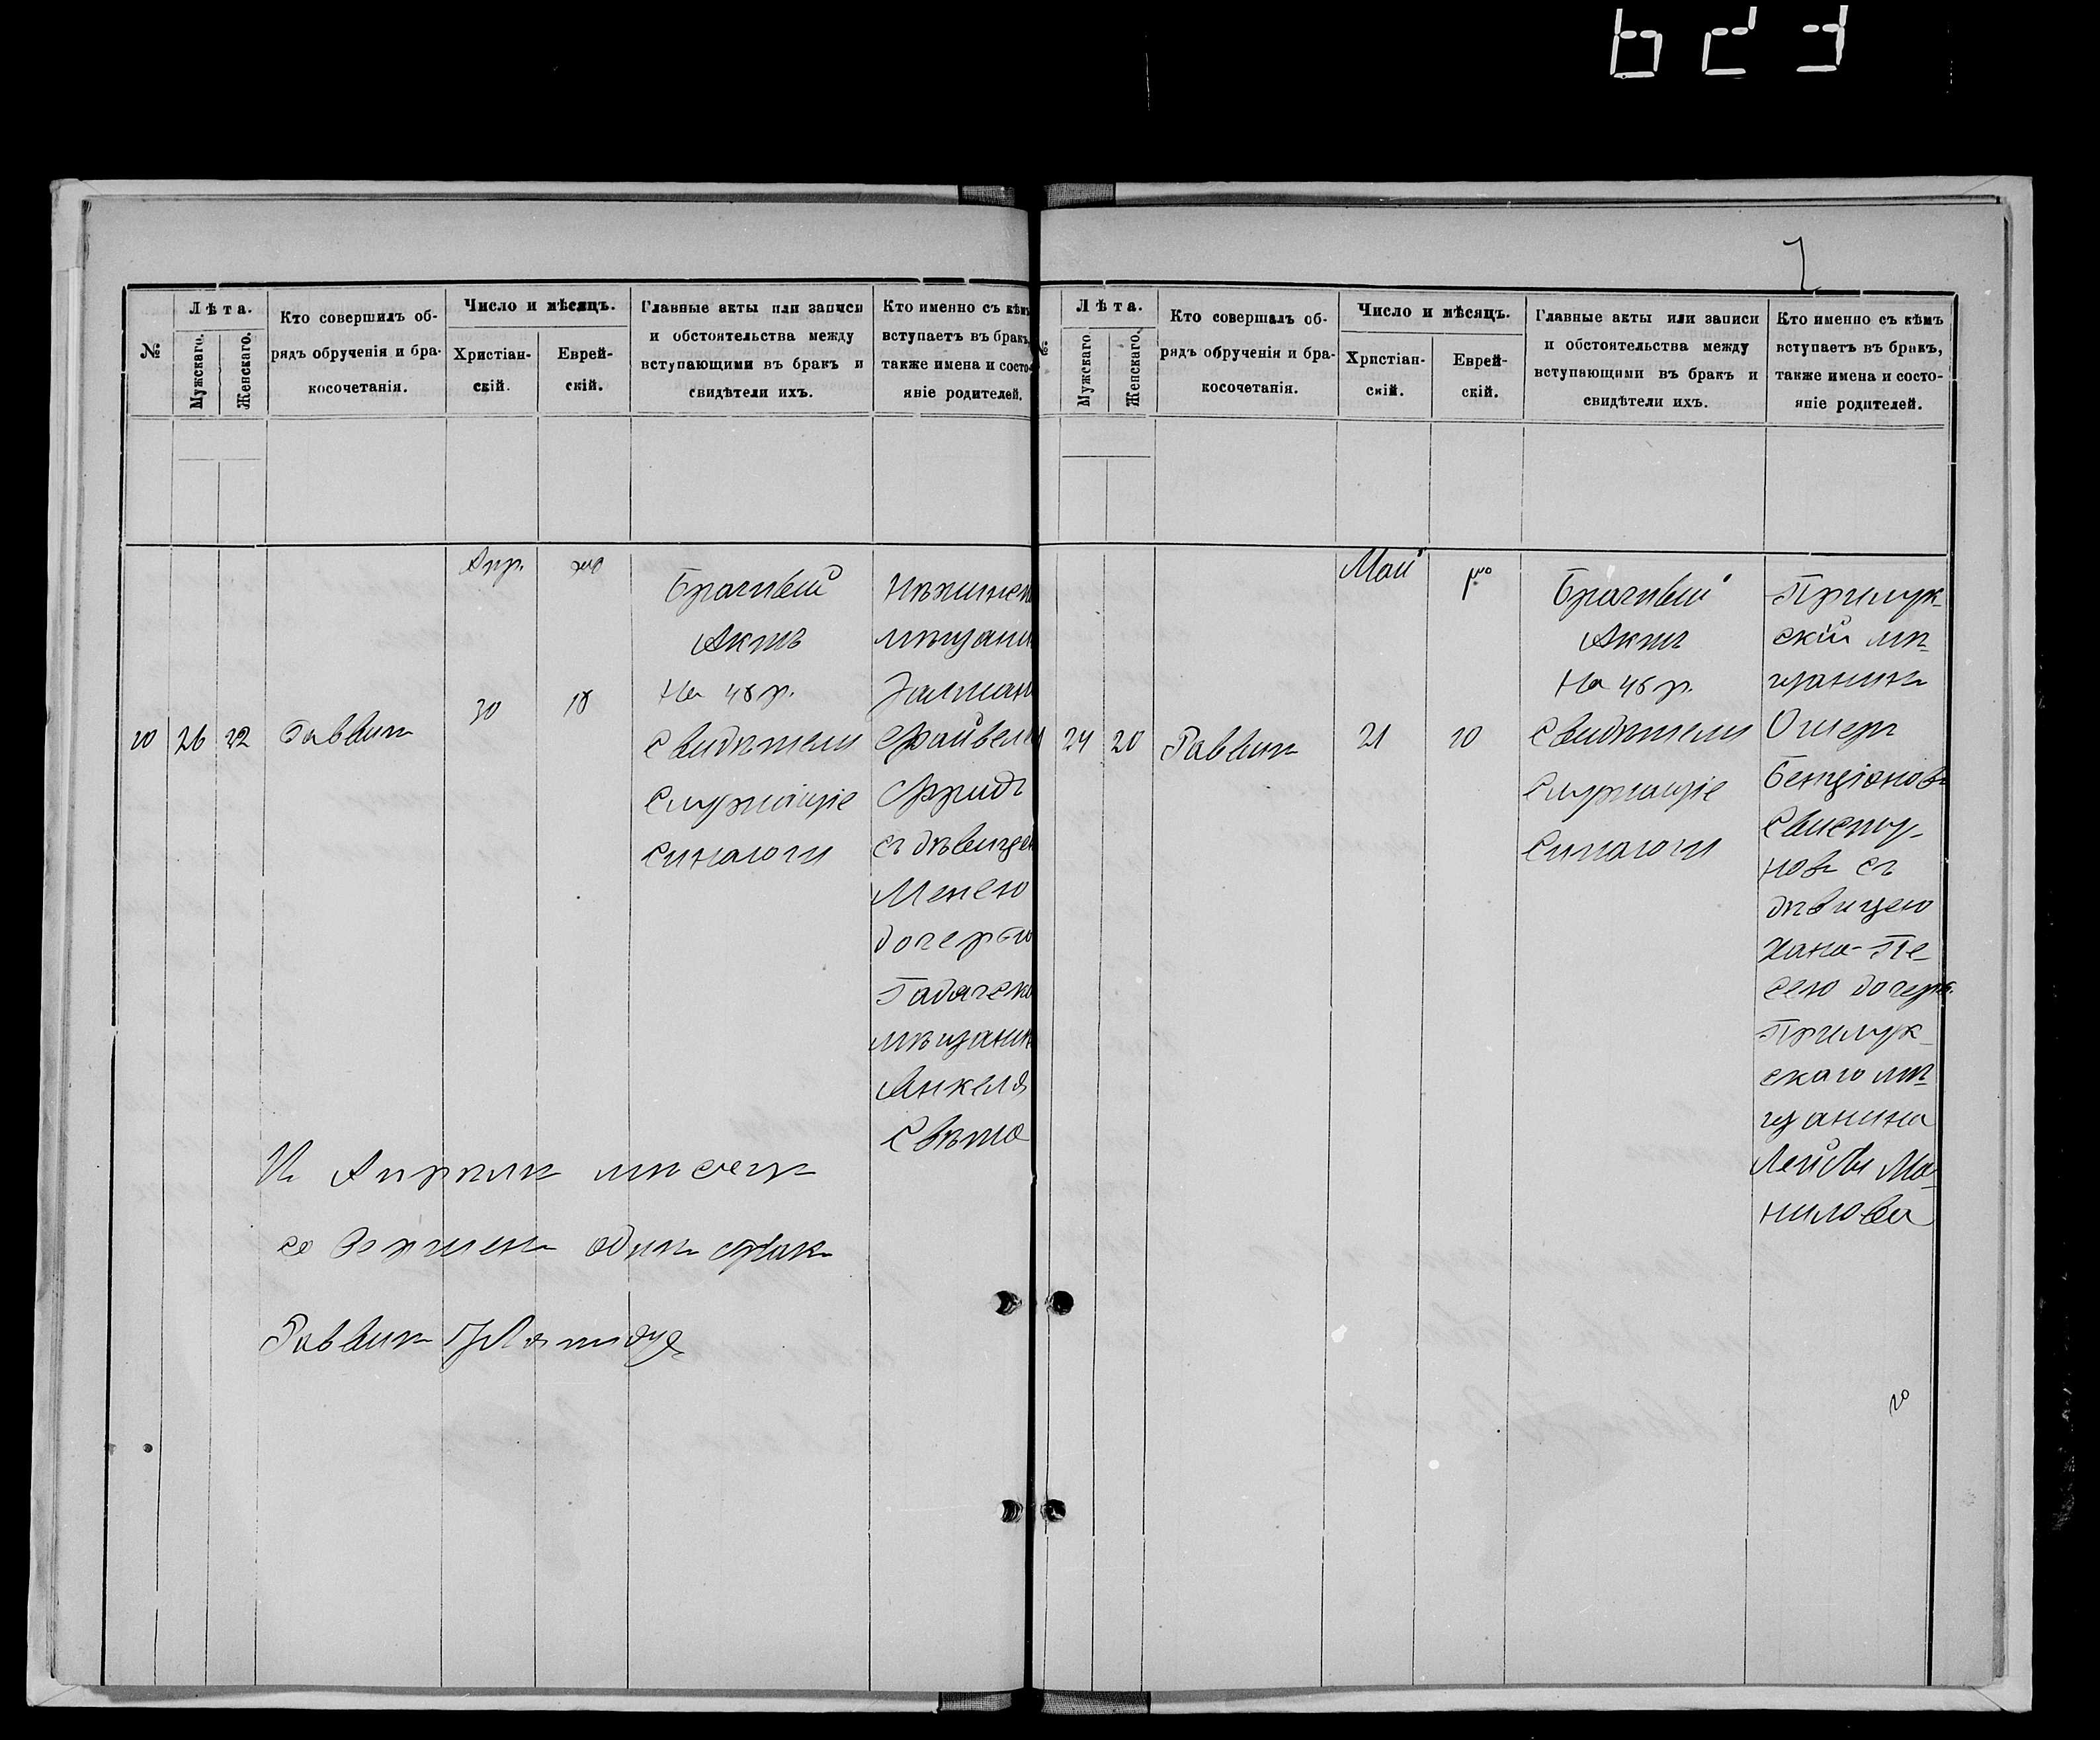 7
№
Лѣта.
Мужскаго.
Женскаго.
Кто совершилъ об-
рядъ обрученія и бра-
косочетанія.
Число и мѣсяцъ.
Христіан-
скій.
Еврей-
скій.
Главные акты или записи
и обстоятельства между
вступающими въ бракъ и
свидѣтели ихъ.
Кто именно съ кѣмъ
вступаетъ въ бракъ,
также имена и состо-
яніе родителей.
Апр.
10 26 22 Раввинъ 30 18
Брачный
Актъ
На 48 р.
Свидѣтели
Служащіе
Синагоги
Нѣжинск
мѣщани
Залман
Файвел
Фридъ
съ дѣвицею
Менею
дочерью
Гадячск
мѣщанин
Янкеля
Свѣто
Въ Апрѣлѣ мѣсяцѣ
совершенъ одинъ бракъ
Раввинъ
№
Лѣта.
Мужскаго
Женскаго.
Кто совершалъ об-
рядъ обрученія и бра-
косочетанія.
Число и мѣсяцъ.
Христіан-
скій.
Еврей-
скій.
Главные акты или записи
и обстоятельства между
вступающими въ бракъ и
свидѣтели ихъ.
Кто именно съ кѣмъ
вступаетъ въ бракъ,
также имена и состо-
яніе родителей.
Май
24 20 Раввинъ 21 10
Брачный
Актъ
На 48 р.
Свидѣтели
Служащіе
Синагоги
Прилук-
скій мѣ-
щанинъ
Ошеръ
Бенціоновъ
новъ съ
дѣвицею
Хана-Пе-
сею дочерью
Прилук-
скаго мѣ-
щанина
Лейбы Ма-
нилова